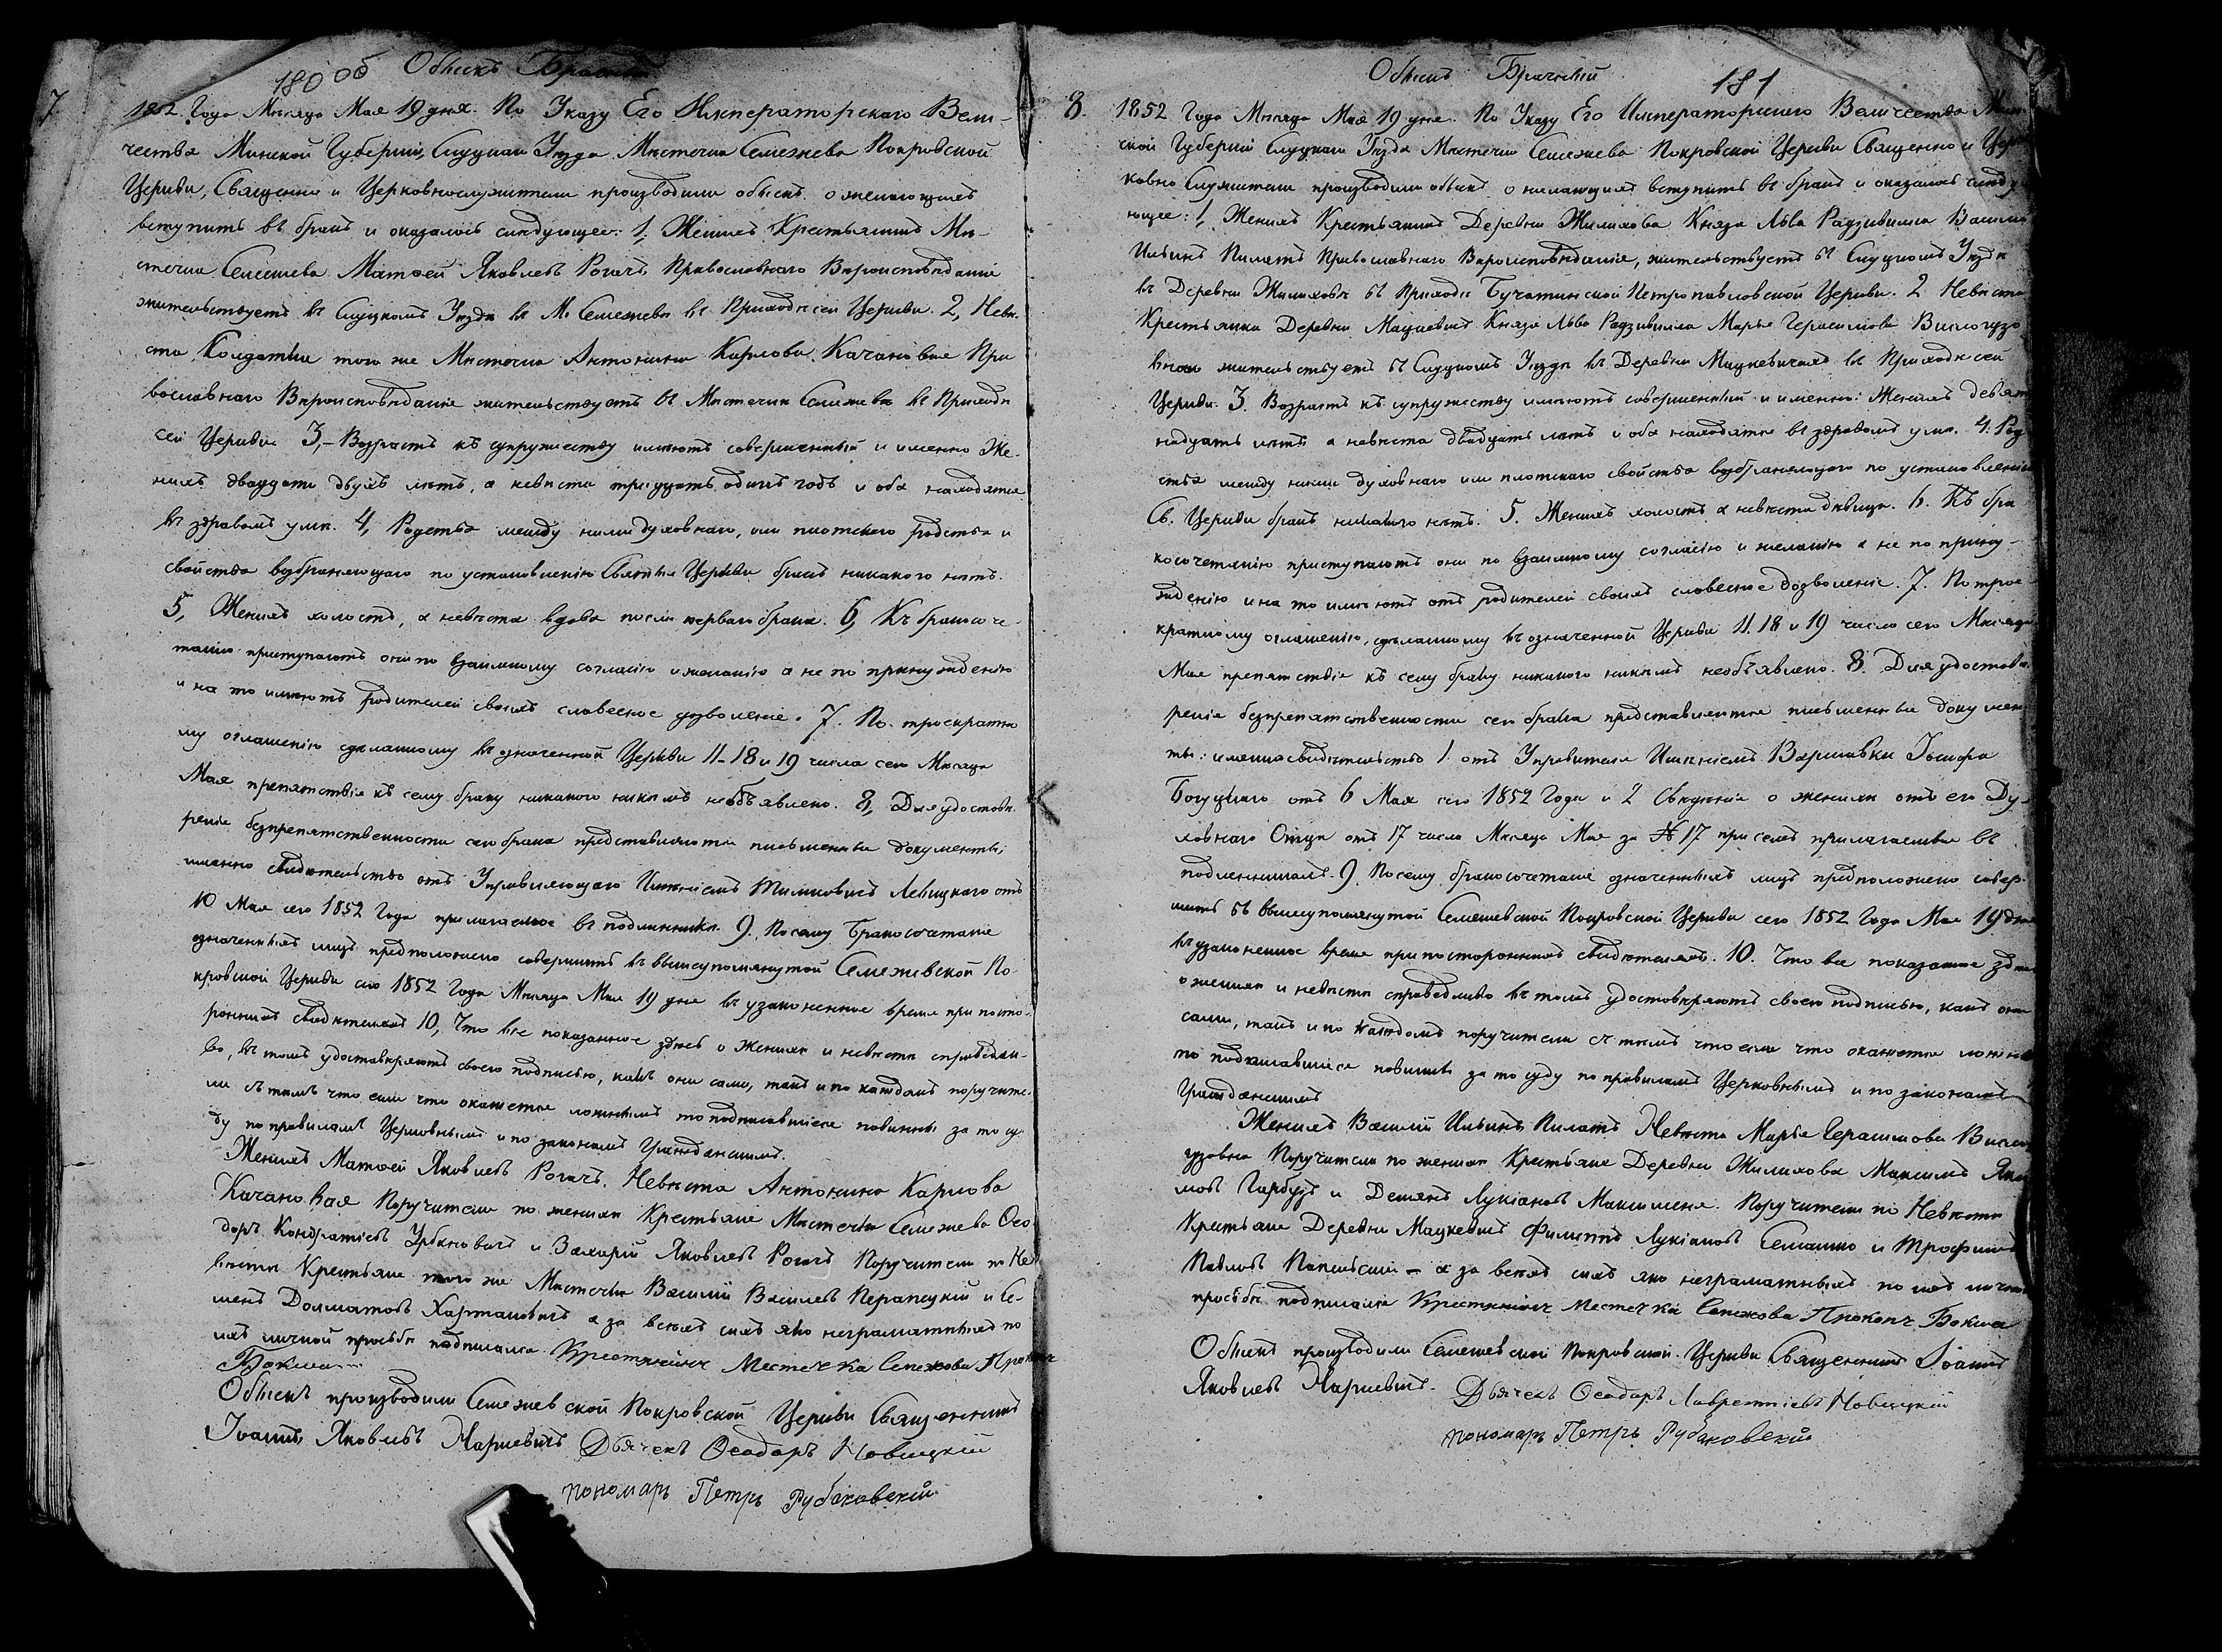 180 об Обыскъ Брачный
7
1852. Года Мѣсяца Мая 19 дня. По Указу Его Императорскаго Вели-
чества Минской Губерніи, Слуцкаго Уѣзда Мѣстечка Семежева Покровской
Церкви, Священно и Церковнослужители производили обыскъ о желающихъ
вступить въ бракъ и оказалось слѣдующее: 1, Женихъ Крестьянинъ Мѣ-
стечка Семежева Матѳей Яковлевъ Рогачъ, Православнаго Вѣроисповѣданія
жительствуетъ въ Слуцкомъ Уѣздѣ въ М. Семежевѣ въ Приходѣ сей Церкви. 2, Невѣ-
ста Солдатка того же Мѣстечка Антонина Карлова Качановая Пра
вославнаго Вѣроисповѣданія жительствуетъ въ Мѣстечкѣ Семежевѣ въ Приходѣ
сей Церкви 3,- Возрастъ къ супружеству имѣютъ совершенный и именно Же-
нихъ двадцати двухъ лѣтъ, а невѣста тридцать одинъ годъ и оба находятся
въ здравомъ умѣ. 4, Родства между ними духовнаго, или плотскаго родства и
свойства возбраняющаго по установленію Святыя Церкви бракъ никакого нѣтъ.
5, Женихъ холостъ, а невѣста вдова послѣ перваго брака. 6, Къ бракосоче-
танію приступаютъ они по взаимному согласію и желанію а не по принужденію
и на то имѣютъ родителей своихъ словесное дозволеніе. 7. По троекратно
му оглашенію сдѣланному въ означенной Церкви 11-18 и 19 числа сего Мѣсяца
Мая препятствія къ сему браку никакого никѣмъ необъявлено. 8, Для удостовѣ-
ренія безпрепятственности сего брака представляются письменные документы,
именно свидѣтельство отъ Управляющаго Имѣніемъ Тимковичъ Левицкаго отъ
10 Мая сего 1852 Года прилагаемое въ подлинникѣ. 9. Посему Бракосочетаніе
означенныхъ лицъ предположено совершить въ вышеупомянутой Семежевской По-
кровской Церкви сего 1852 Года Мѣсяца Мая 19 дня въ узаконенное время при посто-
роннихъ свидѣтеляхъ 10, Что все показанное здѣсь о Женихѣ и невѣстѣ справедли-
во, въ томъ удостовѣряютъ своею подписью, какъ они сами, такъ и по каждомъ поручите-
ли съ тѣмъ что если что окажется ложнымъ то подписавшіеся повинны за то су-
ду по правиламъ Церковнымъ и по законамъ Гражданскимъ.
Женихъ Матѳей Яковлевъ Рогачъ. Невѣста Антонина Карлова
Качановая Поручители по женихѣ Крестьяне Мѣстечка Семежева Ѳео
доръ Кондратіевъ Урбановичъ и Захарій Яковлевъ Рогачъ Поручители по Не
вѣстѣ Крестьяне того же Мѣстечка Василій Васильевъ Перапецкій и Се-
менъ Долматовъ Хартановичъ а за всѣхъ сихъ яко неграматныхъ по
ихъ личной просьбѣ подписался Крестянинъ Местечка Семежова Прокопъ
Бокша
Обыскъ производили Семежевской Покровской Церкви Священникъ
Іоаннъ Яковлевъ Марцевичъ Дьячекъ Ѳеодоръ Новицкій
пономарь Петръ Рубановскій

Обыскъ Брачный 181
8. 1852 Года Мѣсяца Мая 19 дня. По Указу Его Императорскаго Величества Мин
ской Губерніи Слуцкаго Уѣзда Мѣстечка Семежева Покровской Церкви Священно и Цер
ковно Служители производили обыскъ о желающихъ вступить въ бракъ и оказалось слѣду
ющее: 1, Женихъ Крестьянинъ Деревни Жилихова Князя Льва Радзивилла Василій
Ильинъ Пилатъ Православнаго Вѣроисповѣданія, жительствуетъ въ Слуцкомъ Уѣздѣ
въ Деревни Жилиховѣ въ Приходѣ Бучатинской Петропавловской Церкви. 2 Невѣста
Крестьянка Деревни Мацкевичъ Князя Льва Радзивилла Марья Герасимова
жительствуетъ въ Слуцкомъ Уѣздѣ въ Деревни Мацкевичахъ въ Приходѣ сей
Церкви. 3. Возрастъ къ супружеству имѣютъ совершенный и именно: Женихъ девят
надцать лѣтъ а невѣста двадцать лѣтъ и оба находятся въ здравомъ умѣ. 4. Род
ства между ними духовнаго или плотскаго свойства возбраняющаго по установленію
Св. Церкви бракъ никакого нѣтъ. 5. Женихъ холостъ а невѣста дѣвица. 6. Къ бра
косочетанію приступаютъ они по взаимному согласію и желанію а не по прину-
жденію и на то имѣютъ отъ родителей своихъ словесное дозволеніе. 7. По трое-
кратному оглашенію, сдѣланному въ означенной Церкви 11. 18 и 19 числа сего Мѣсяца
Мая препятствія къ сему браку никакого никѣмъ необъявлено. 8. Для удостовѣ
ренія безпрепятственности сего брака представляются письменные докумен
ты: именно свидѣтельство 1. отъ Управителя Имѣніемъ Варшавки Іосифа
Богуцкаго отъ 6 Мая сего 1852 Года и 2 Свѣденія о женихѣ отъ его Ду-
ховнаго Отца отъ 17 числа Мѣсяца Мая за № 17 при семъ прилагаемые въ
подлинникахъ. 9. Посему бракосочетаніе означенныхъ лицъ предположено совер-
шить въ вышеупомянутой Семежевской Покровской Церкви сего 1852 Года Мая 19 дня
въ узаконенное время при постороннихъ свидѣтеляхъ. 10. Что все показанное здѣсь
о женихѣ и невѣстѣ справедливо въ томъ удостовѣряютъ своею подписью, какъ они
сами, такъ и по каждомъ поручители съ тѣмъ что если что окажется ложнымъ
то подписавшіеся повинны за то суду по правиламъ Церковнымъ и по законамъ
Гражданскимъ
Женихъ Василій Ильинъ Пилатъ Невѣста Марья Герасимова
Поручители по женихѣ Крестьяне Деревни Жилихова Максимъ Яки
мовъ Гарбузъ и Демянъ Лукіановъ Максименя. Поручители по Невѣстѣ
Крестьяне Деревни Мацкевичъ Филиппъ Лукіановъ Семашко и Трофимъ
Павловъ - а за всѣхъ сихъ яко неграматныхъ по ихъ личной
просьбѣ подписался Крестянинъ Местечка Семежова Прокопъ Бокша
Обыскъ производили Семежевской Покровской Церкви Священникъ Іоаннъ
Яковлевъ Марцевичъ. Дьячекъ Ѳеодоръ Лаврентіевъ Новицкій
пономарь Петръ Рубановскій